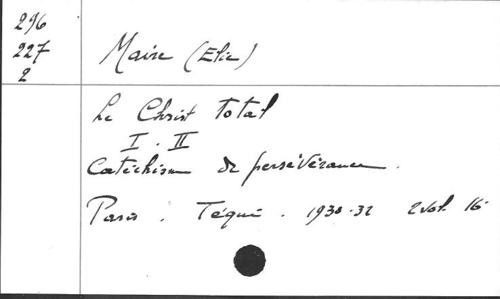 296
227
2
Maire (Elie)
Le Christ total
I. II
Catéchisme de persévérance.
Paris. Téqui. 1930-32 2 vol. 16